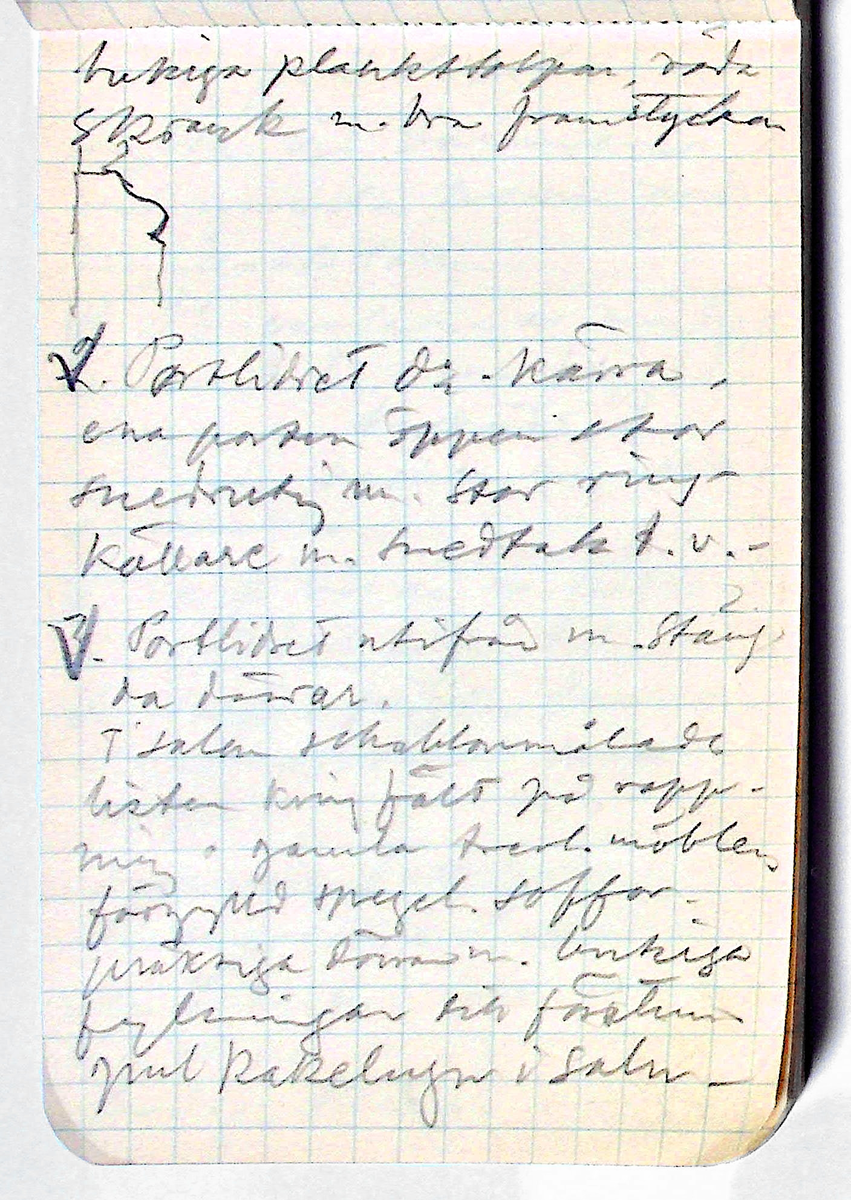 bukiga plankstolpar, röda
skrank m. bra framstycken
2. Portlidret då kärra,
ena porten öppen o stor
snedrutig m. stor ring -
Källare m. snedtak t.v. -
3. Portlidret utifrån m. stäng-
da dörrar.
I salen schablonmålade
lister kring fält på rapp-
ning o gamla möbler,
förgylld spegel. soffor -
präktiga dörrar m. bukiga
fyllningar och förstum
gul kakelugn i salen -